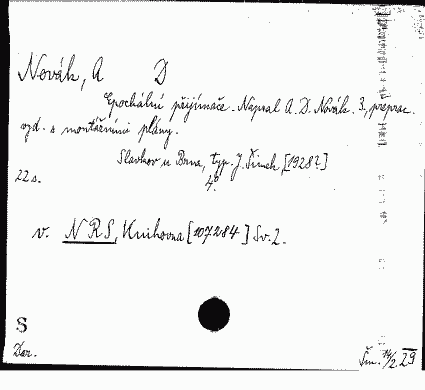 Novák, A D
Epochální přijímače. Napsal A. D. Novák. 3., přeprac.
vyd. s montážními plány.
Slavkov u Brna, typ. J. Šimek, [1928?]
22 s. 4°.
v. NRS, Knihovna [107284] Sv. 2.
S
Dar.
Šm. 14/2. 29